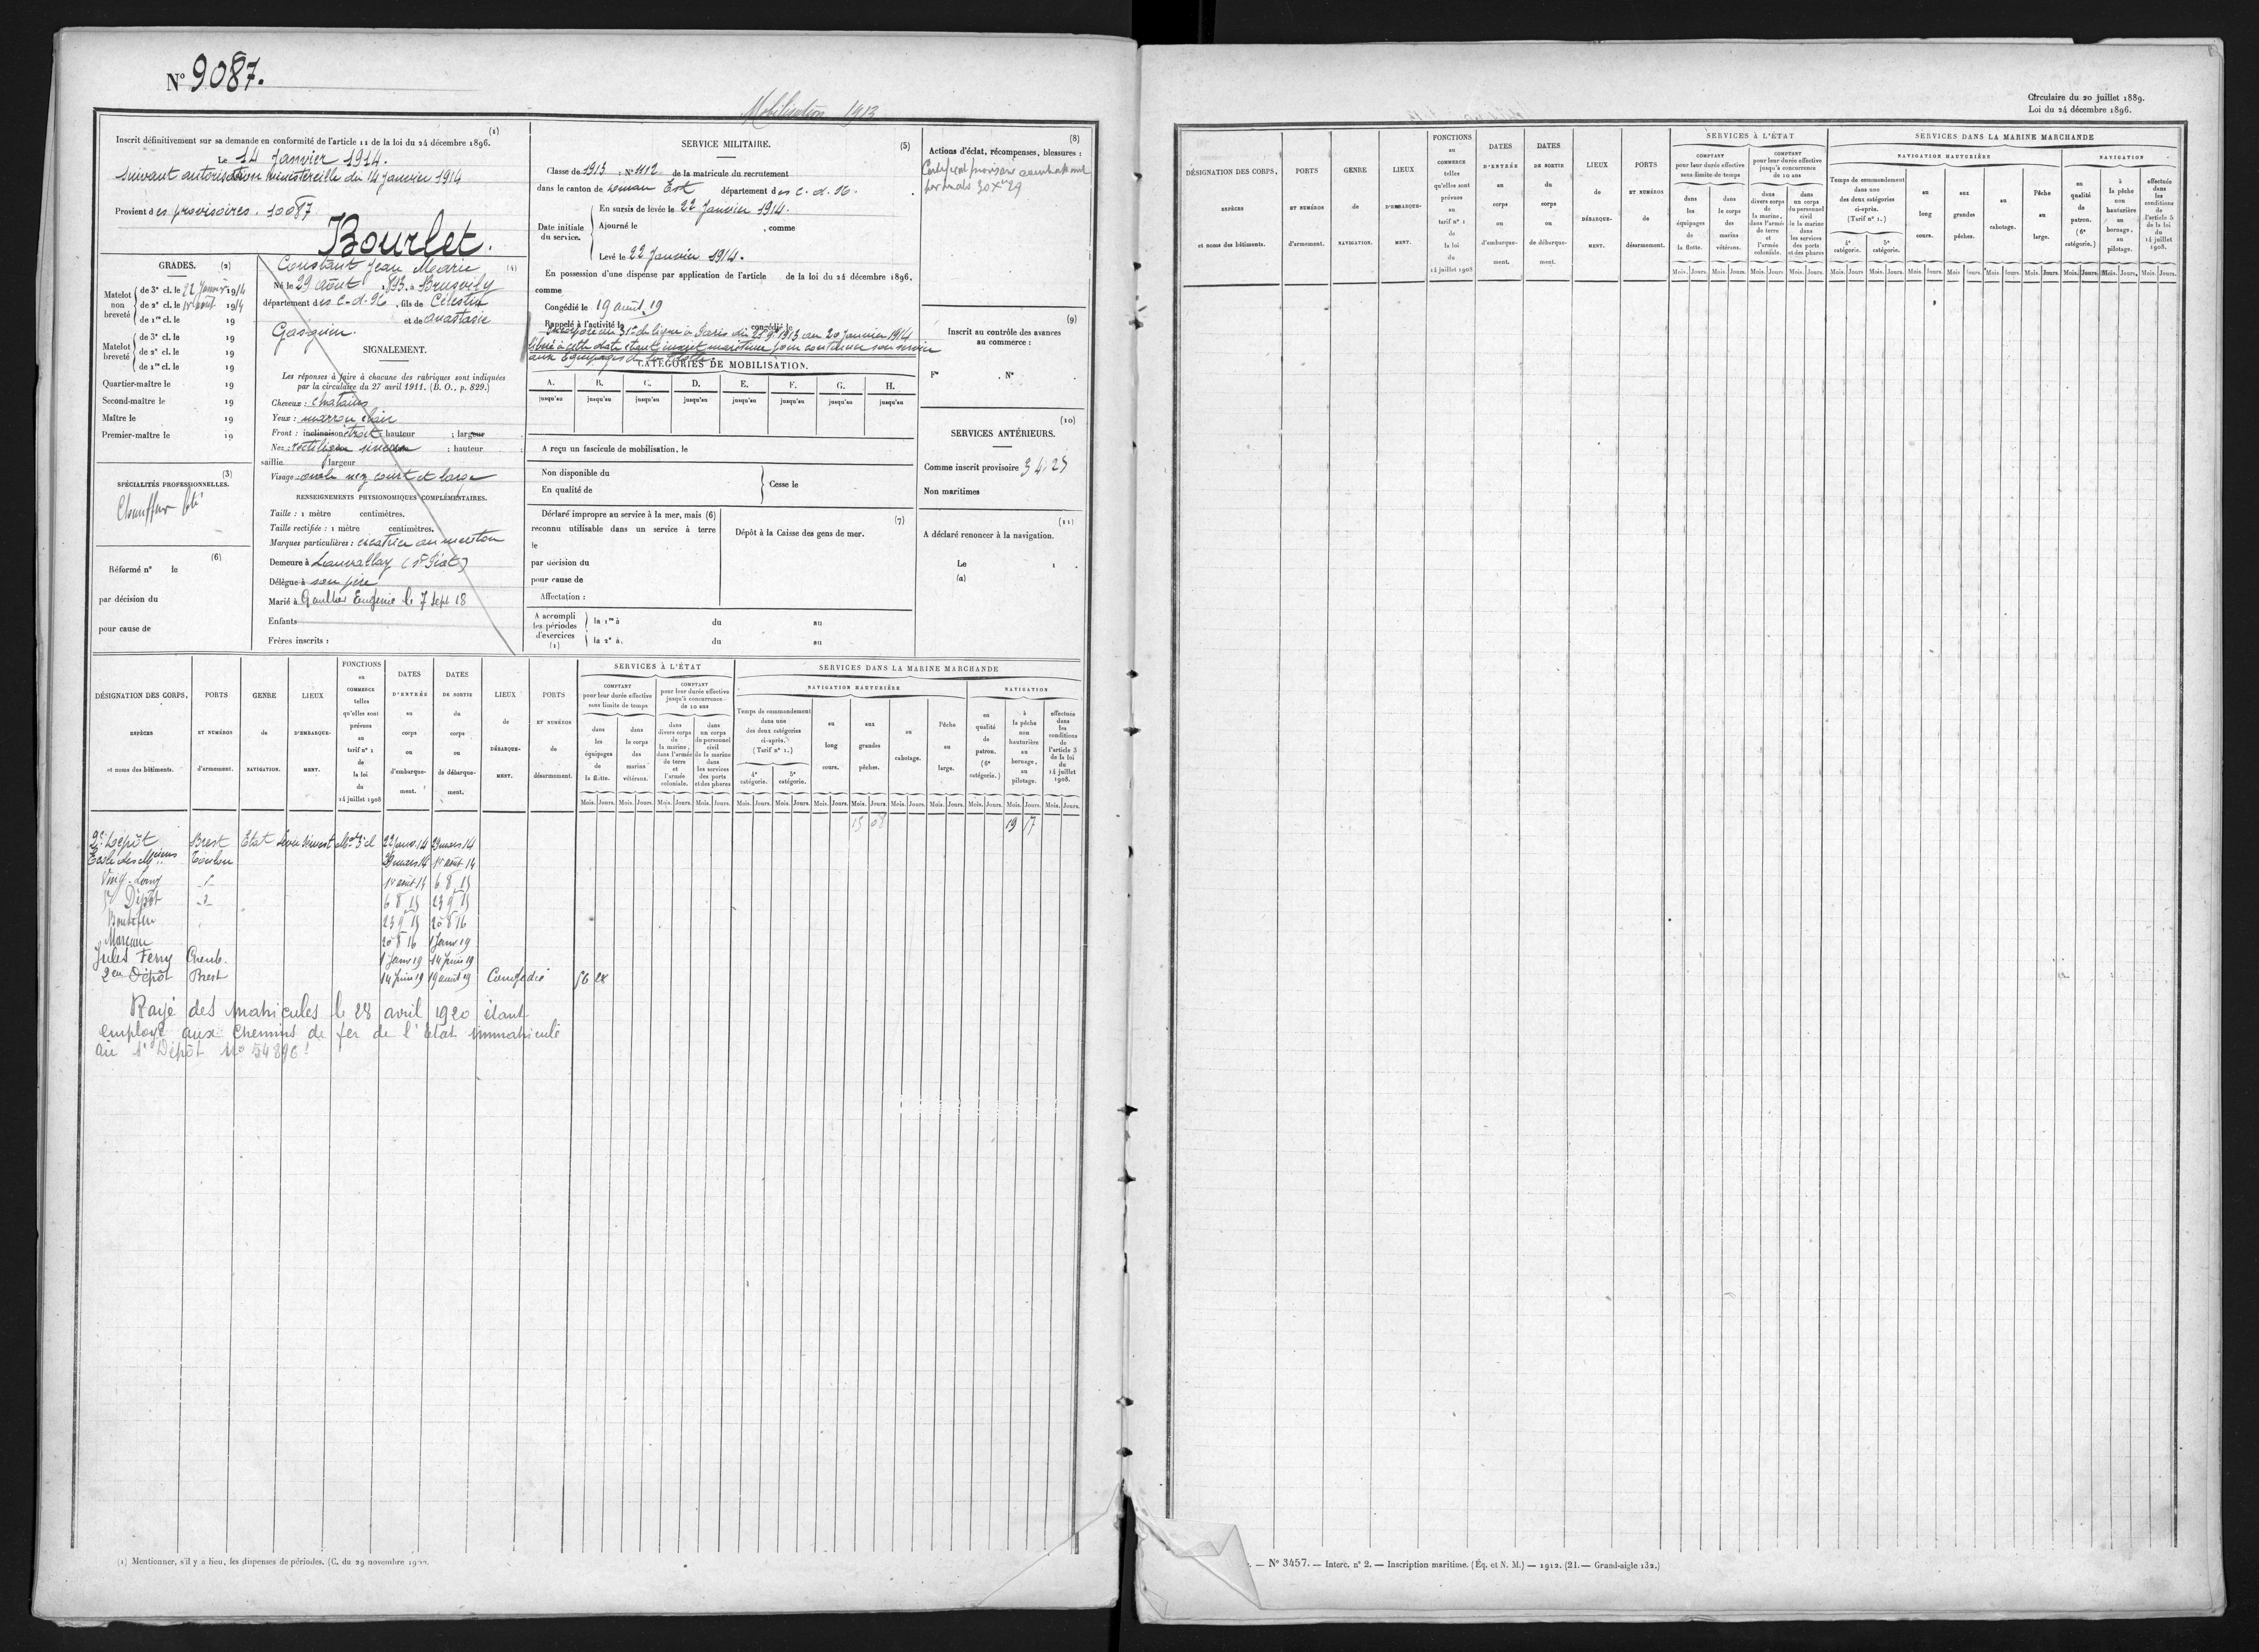 N° 9087.
Mobilisation 1913
(1)
Inscrit définitivement sur sa demande en conformité de l'article 11 de la loi du 24 décembre 1896.
Le 14 Janvier 1914.
suivant autorisation ministérielle du 14 Janvier 1914
Provient des provisoires. 10087
Bourlet.
GRADES. (2)
Matelot non breveté
de 3e cl. le 22 Janvier 1914
de 2e cl. le 1er août 1914
de 1re cl. le 19
Matelot breveté
de 3e cl. le 19
de 2e cl. le 19
de 1re cl. le 19
Quartier-maître le 19
Second-maître le 19
Maître le 19
Premier-maître le 19
(3)
SPÉCIALITÉS PROFESSIONNELLES.
Chauffeur
(6)
Réformé n° le
par décision du
pour cause de
Constant Jean Marie (4)
Né le 29 août 1893 à Brusvily
département des C.-d.-N. , fils de Célestin
et de Anastasie
Gasquin.
SIGNALEMENT.
Les réponses à faire à chacune des rubriques sont indiquées
par la circulaire du 27 avril 1911. (B. O., p. 829.)
Cheveux : chatains
Yeux : marron clair
Front : inclinaison étroit hauteur ; largeur
Nez : rectiligne sinueux ; hauteur
saillie largeur
Visage : ovale nez court et large
RENSEIGNEMENTS PHYSIONOMIQUES COMPLÉMENTAIRES.
Taille : 1 mètre centimètres.
Taille rectifiée : 1 mètre centimètres.
Marques particulières : cicatrice au menton
Demeure à Lanvallay
Délègue à son père
Marié à Gaultier Eugenie le 7 sept 18
Enfants
Frères inscrits :
SERVICE MILITAIRE. (5)
Classe de 1913 ; N° 1112 de la matricule du recrutement
dans le canton de Dinan Est département des C.-d.-N.
Date initiale du service.
En sursis de levée le 22 Janvier 1914.
Ajourné le , comme
Levé le 22 Janvier 1914.
En possession d'une dispense par application de l'article de la loi du 24 décembre 1896,
comme
Congédié le 19 aout 19
Rappelé à l'activité le , congédié le
de ligne à Paris du 1913 au 20 Janvier 1914
à cette date étant inscrit maritime pour continuer son service
aux Equipages de la flotte.
CATÉGORIES DE MOBILISATION.
A. B. C. D. E. F. G. H.
jusqu'au jusqu'au jusqu'au jusqu'au jusqu'au jusqu'au jusqu'au jusqu'au
A reçu un fascicule de mobilisation, le
Non disponible du
En qualité de
Cesse le
Déclaré impropre au service à la mer, mais (6)
reconnu utilisable dans un service à terre
le
par décision du
pour cause de
Affectation :
(7)
Dépôt à la Caisse des gens de mer.
A accompli les périodes d'exercices (1)
la 1re à du au
la 2e à du au
(8)
Actions d'éclat, récompenses, blessures :
Certificat provisoire
(9)
Inscrit au contrôle des avances
au commerce :
F° . N° .
(10)
SERVICES ANTÉRIEURS.
Comme inscrit provisoire 34.25
Non maritimes
(11)
A déclaré renoncer à la navigation.
Le 1 .
(a)
DÉSIGNATION DES CORPS, ESPÈCES et noms des bâtiments.
PORTS ET NUMÉROS d'armement.
GENRE de NAVIGATION.
LIEUX D'EMBARQUE- MENT.
FONCTIONS au COMMERCE telles qu'elles sont prévues au tarif n° 1 de la loi du 14 juillet 1908
DATES D'ENTRÉE au corps ou d'embarque- ment.
DATES DE SORTIE du corps ou de débarque- ment.
LIEUX de DÉBARQUE- MENT.
PORTS ET NUMÉROS de désarmement.
SERVICES À L'ÉTAT
COMPTANT pour leur durée effective sans limite de temps
dans les équipages de la flotte.
dans le corps des marins vétérans.
COMPTANT pour leur durée effective jusqu'à concurrence de 10 ans
dans divers corps de la marine, dans l'armée de terre et l'armée coloniale.
dans un corps du personnel civil de la marine dans les services des ports et des phares
SERVICES DANS LA MARINE MARCHANDE
NAVIGATION HAUTURIÈRE
Temps de commandement dans une des deux catégories ci-après. (Tarif n° 1.)
4e catégorie. 5e catégorie.
au long cours.
aux grandes pêches.
au cabotage.
Pêche au large.
NAVIGATION
en qualité de patron. (6e catégorie.)
à la pêche non hauturière au bornage, au pilotage.
effectuée dans les conditions de l'article 5 de la loi du 14 juillet 1908.
Mois. Jours. Mois. Jours. Mois. Jours. Mois. Jours. Mois. Jours. Mois. Jours. Mois. Jours. Mois. Jours. Mois. Jours. Mois. Jours. Mois. Jours. Mois. Jours. Mois. Jours.
15 08 19 17
2e Dépôt Brest Etat Mot 3 cl 22 janv 14 29 mars 14
Ecole des Mciens Toulon 29 mars 14 1er août 14
Vinh-Long 1er aout 14 6 8 15
5e Dépôt 6 8 15 23 9 15
23 9 15 20 8 16
Marceau 20 8 16 1 Janv 19
Jules Ferry Cherb. 1 Janv 19 14 Juin 19
2eme Dépôt Brest 14 Juin 19 19 aout 19 Congédié 56 28
Rayé des matricules le 28 avril 1920 étant
employé aux Chemins de fer de l'état immatriculé
au 1er Dépôt No 54896
(1) Mentionner, s'il y a lieu, les dispenses de périodes. (C. du 29 novembre
Circulaire du 20 juillet 1889.
Loi du 24 décembre 1896.
DÉSIGNATION DES CORPS, ESPÈCES et noms des bâtiments.
PORTS ET NUMÉROS d'armement.
GENRE de NAVIGATION.
LIEUX D'EMBARQUE- MENT.
FONCTIONS au COMMERCE telles qu'elles sont prévues au tarif n° 1 de la loi du 14 juillet 1908
DATES D'ENTRÉE au corps ou d'embarque- ment.
DATES DE SORTIE du corps ou de débarque- ment.
LIEUX de DÉBARQUE- MENT.
PORTS ET NUMÉROS de désarmement.
SERVICES À L'ÉTAT
COMPTANT pour leur durée effective sans limite de temps
dans les équipages de la flotte.
dans le corps des marins vétérans.
COMPTANT pour leur durée effective jusqu'à concurrence de 10 ans
dans divers corps de la marine, dans l'armée de terre et l'armée coloniale.
dans un corps du personnel civil de la marine dans les services des ports et des phares
SERVICES DANS LA MARINE MARCHANDE
NAVIGATION HAUTURIÈRE
Temps de commandement dans une des deux catégories ci-après. (Tarif n° 1.)
4e catégorie. 5e catégorie.
au long cours.
aux grandes pêches.
au cabotage.
Pêche au large.
NAVIGATION
en qualité de patron. (6e catégorie.)
à la pêche non hauturière au bornage, au pilotage.
effectuée dans les conditions de l'article 5 de la loi du 14 juillet 1908.
Mois. Jours. Mois. Jours. Mois. Jours. Mois. Jours. Mois. Jours. Mois. Jours. Mois. Jours. Mois. Jours. Mois. Jours. Mois. Jours. Mois. Jours. Mois. Jours. Mois. Jours.
. — N° 3457. — Interc. n° 2. — Inscription maritime. (Éq. et N. M.) — 1912. (21. — Grand-aigle 132.)